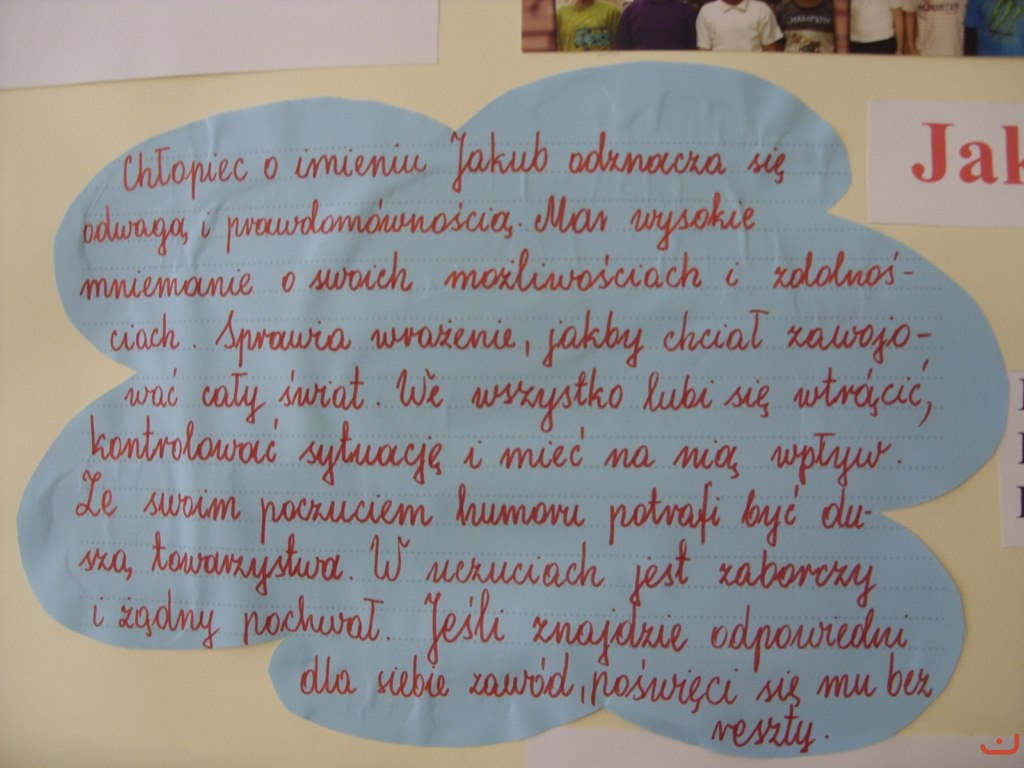 Jak
Chłopiec o imieniu Jakub odznacza się
odwagą i prawdomównością. Ma wysokie
mniemanie o swoich możliwościach i zdolnoś-
ciach. Sprawia wrażenie, jakby chciał zawojo-
wać cały świat. We wszystko lubi się wtrącić,
kontrolować sytuację i mieć na nią wpływ.
Ze swoim poczuciem humoru potrafi być du-
szą towarzystwa. W uczuciach jest zaborczy
i żądny pochwał. Jeśli znajdzie odpowiedni
dla siebie zawód, poświęci się mu bez
reszty.